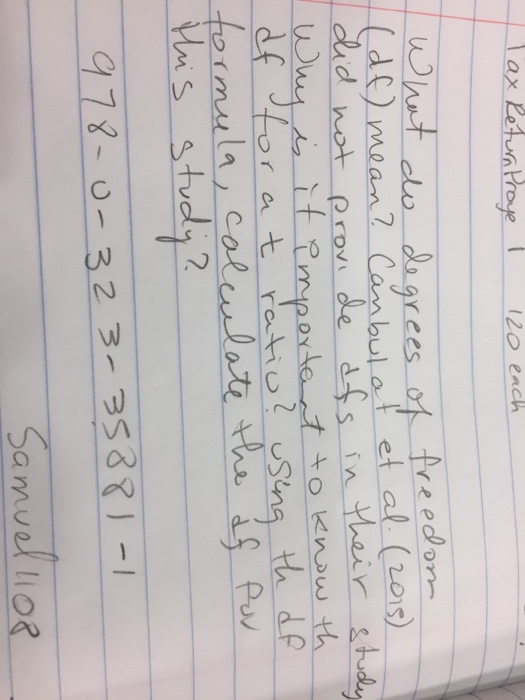 Tax Return Proye 1 120 each
What do degrees of freedom
(df) mean? Canbulat et al. (2015)
did not provide dfs in their study
Why is it important to know th
df for a t ratio? using th df
formula, calculate the df for
this study?
978-0-323-35881-1
Samuel1108